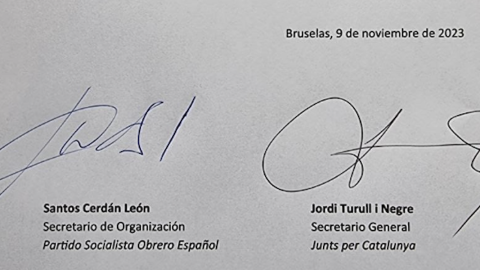 Bruselas, 9 de noviembre de 2023
Santos Cerdán León
Secretario de Organización
Partido Socialista Obrero Español
Jordi Turull i Negre
Secretario General
Junts per Catalunya